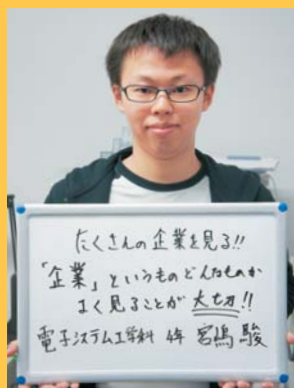 たくさんの企業を見る!!
「企業」というものどんなものか
よく見ることが 大切!!
電子システム工学科 4年 宮嶋 駿